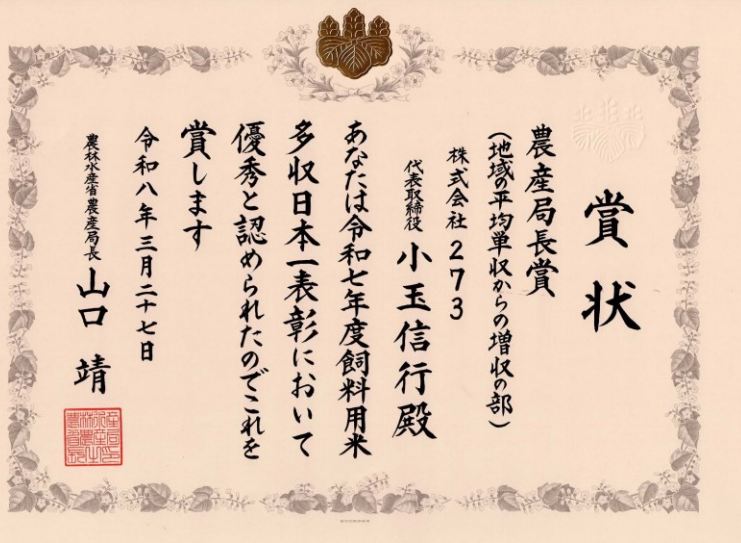 賞状
農産局長賞
(地域の平均単収からの増収の部)
株式会社 273
代表取締役 小玉信行殿
あなたは令和七年度飼料用米
多収日本一表彰において
優秀と認められたのでこれを
賞します
令和八年三月二十七日
農林水産省農産局長 山口 靖